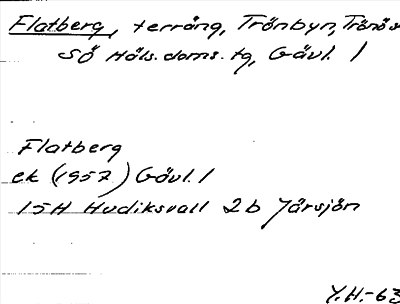 Flatberg, terräng, Trönbyn, Trönö s
SÖ Häls. doms. tg, Gävl. l
Flatberg
ek (1957) Gävl. l
15H Hudiksvall 2b Järsjön
Y.H.-63